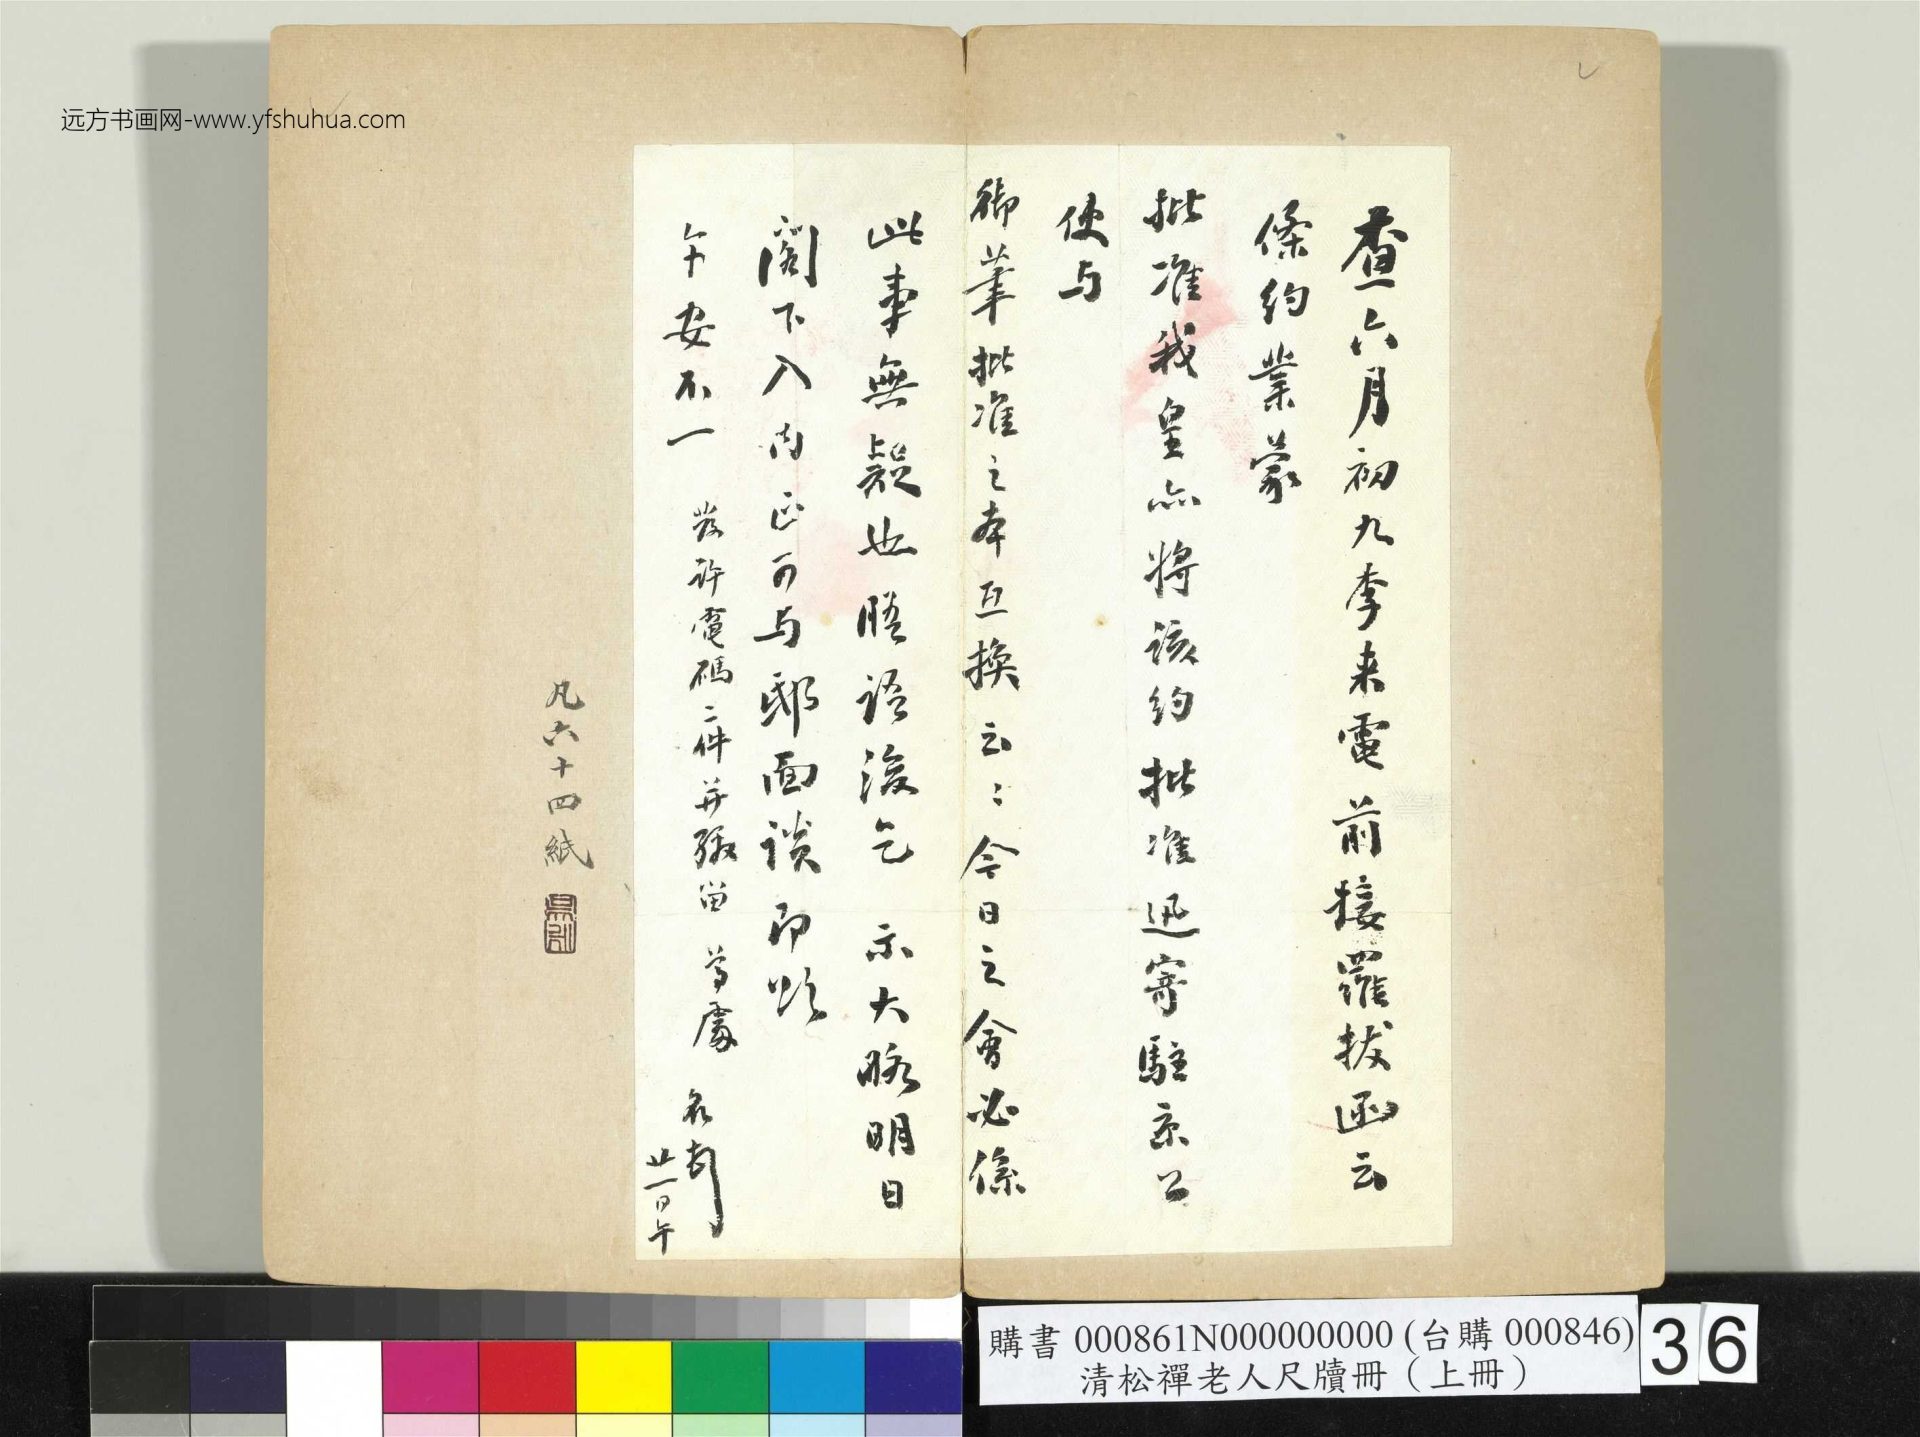 查六月初九李来電前接羅拔函云
條約業蒙
批准我皇亦将該約批准迅寄駐京公
使与
御筆批准之本互換云〻今日之會必係
此事無疑也晤語後乞示大略明日
閣下入内正可与邸面談即頌
午安不一
發許電碼二件并繳留尊處
名心叩
廿一日午
凡六十四紙
远方书画网-www.yfshuhua.com
購書 000861N000000000 (台購 000846)
清松禪老人尺牘冊（上冊）
36